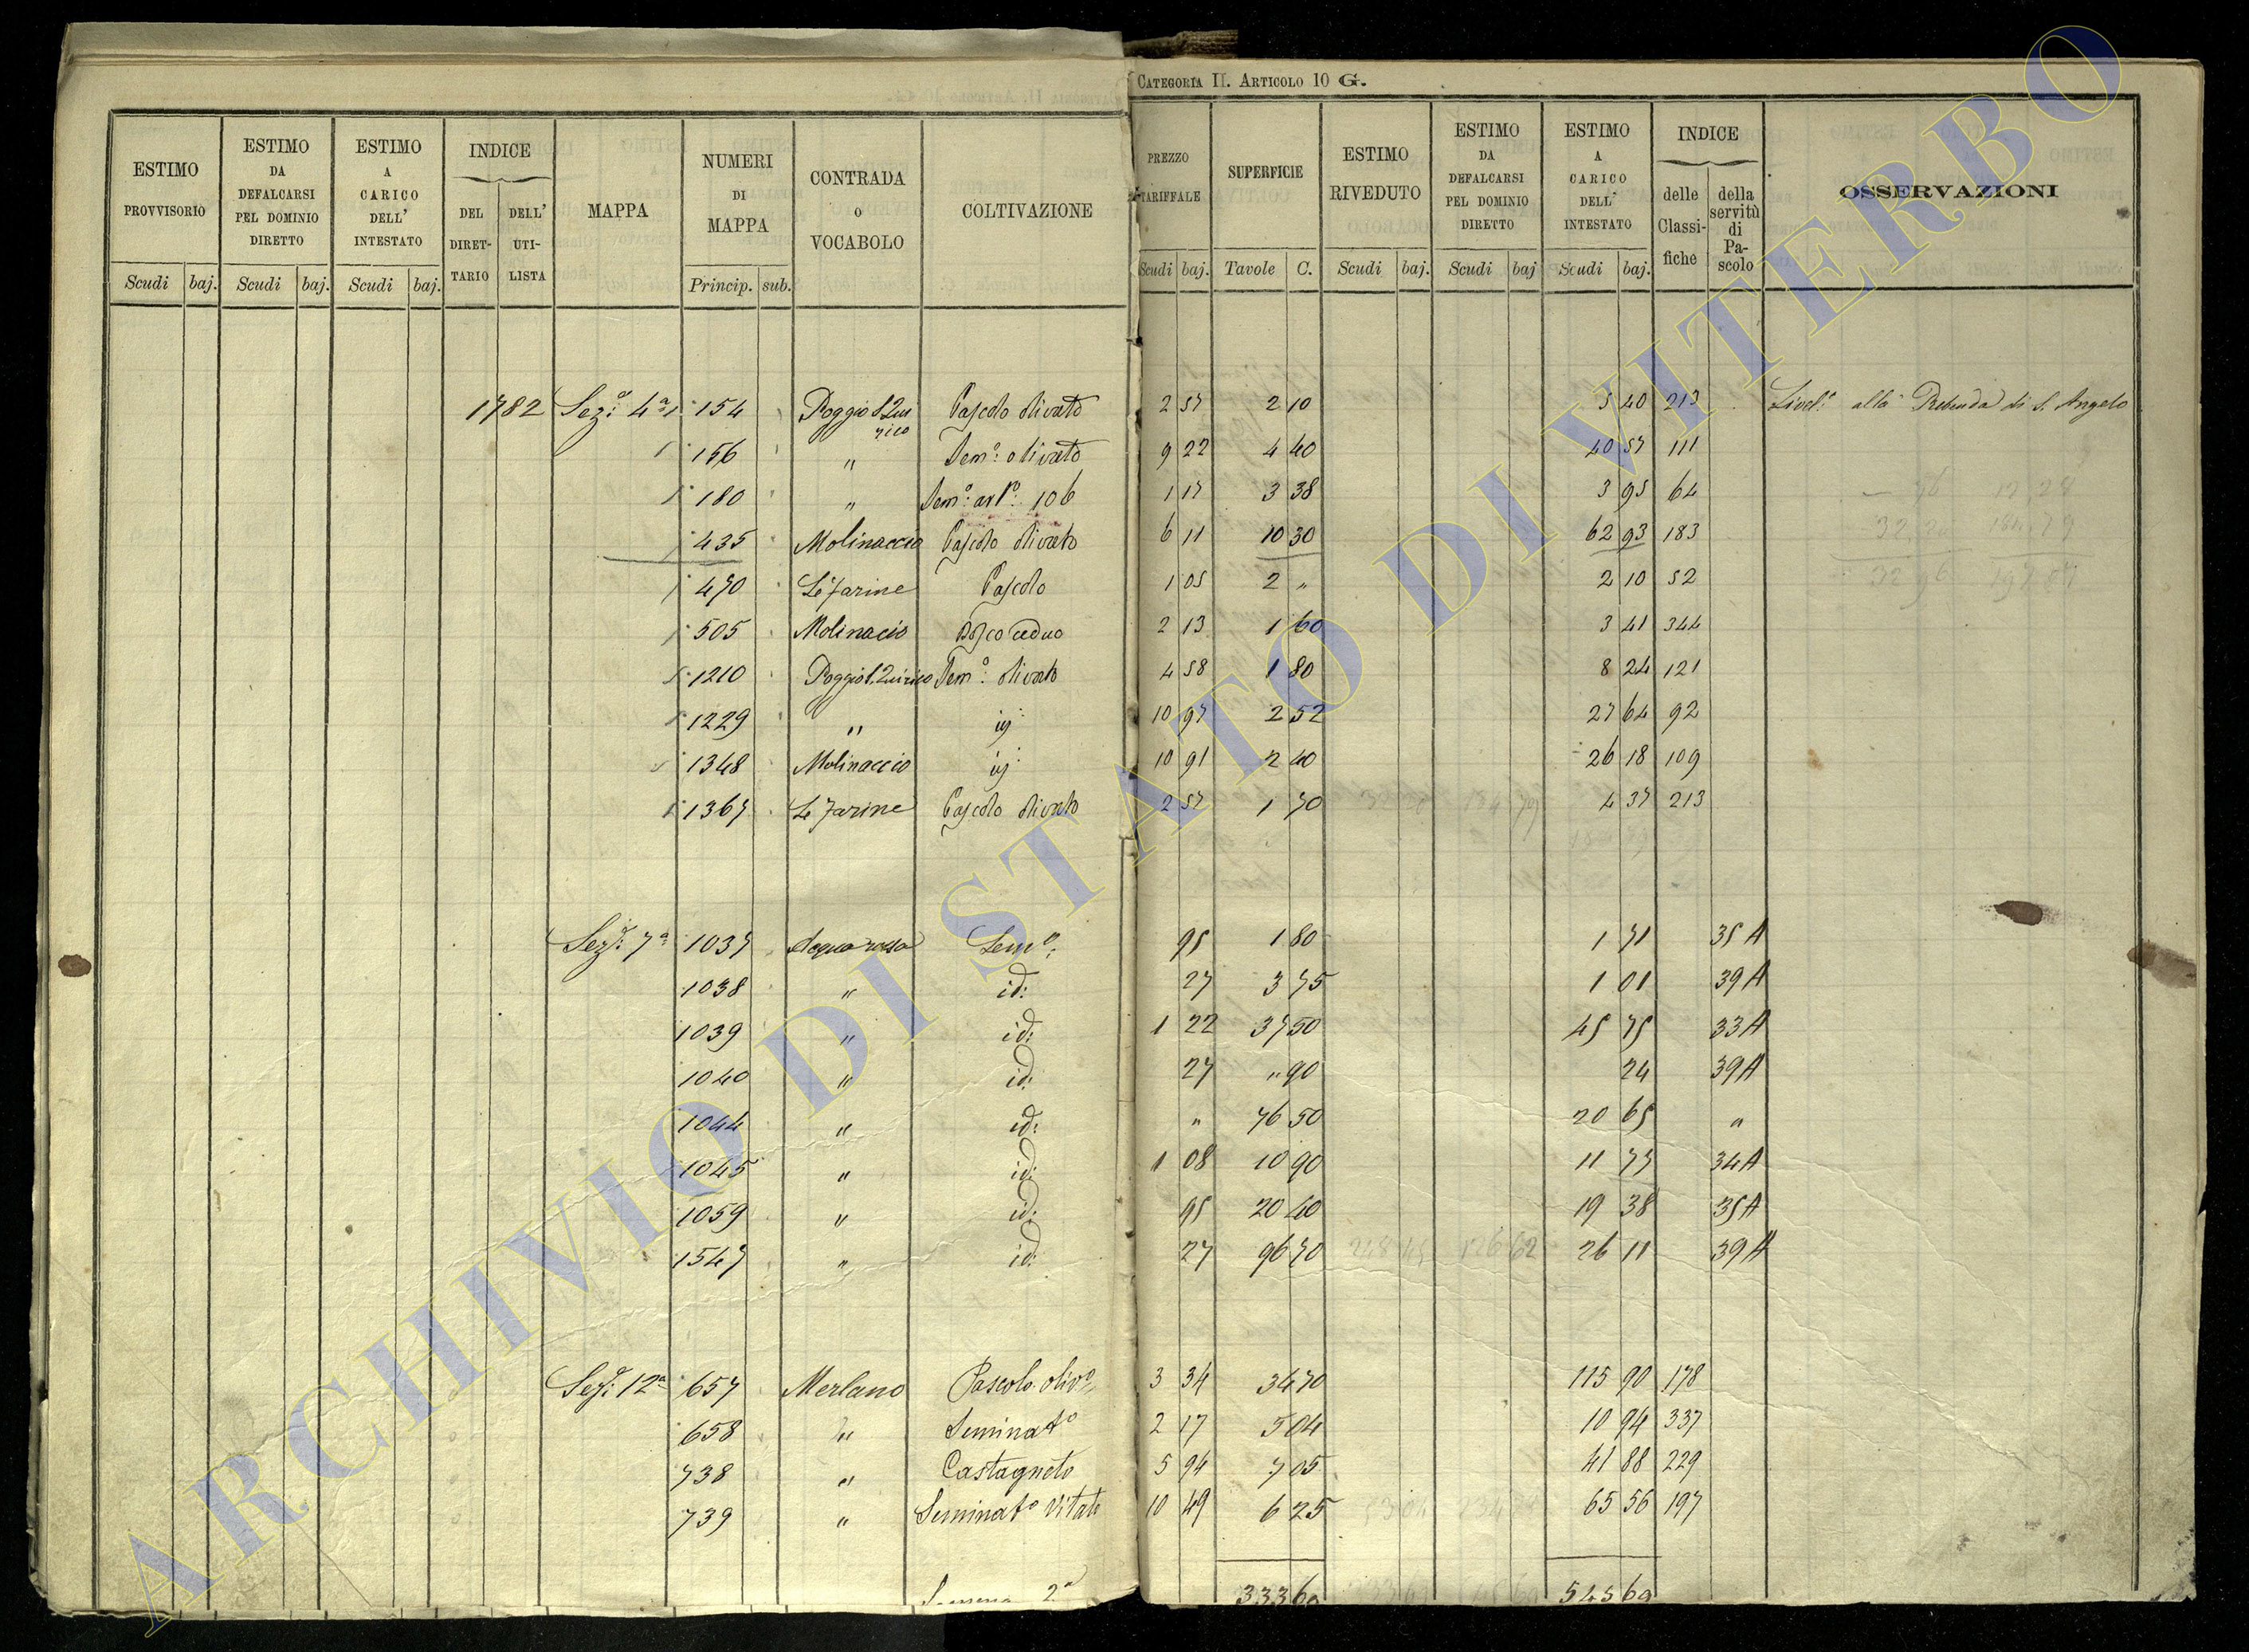 CATEGORIA II. ARTICOLO 10 G.
ESTIMO PROVVISORIO | ESTIMO DA DEFALCARSI PEL DOMINIO DIRETTO | ESTIMO A CARICO DELL' INTESTATO | INDICE DEL DIRETTARIO | DELL' UTILISTA | MAPPA | NUMERI DI MAPPA | CONTRADA O VOCABOLO | COLTIVAZIONE | PREZZO TARIFFALE | SUPERFICIE | ESTIMO RIVEDUTO | ESTIMO DA DEFALCARSI PEL DOMINIO DIRETTO | ESTIMO A CARICO DELL' INTESTATO | INDICE delle Classifiche | della servitù di Pascolo | OSSERVAZIONI
Scudi baj. Scudi baj. Scudi baj. Princip. sub. Scudi baj. Tavole C. Scudi baj. Scudi baj Scudi baj.
1782 Sez.e 4a 154 Poggio S. Quirico Pascolo olivato 2 57 2 10 5 40 213 Livel.o alla Prebenda di S. Angelo
156 " Sem.o olivato 9 22 4 40 40 57 111
180 " Sem.o art.o 106 1 17 3 38 3 95 64
435 Molinaccio Pascolo olivato 6 11 10 30 62 93 183
470 Le Farine Pascolo 1 05 2 " 2 10 52
505 Molinacio Bosco ceduo 2 13 1 60 3 41 344
1210 Poggio S. Quirico Sem.o olivato 4 58 1 80 8 24 121
1229 " id 10 97 2 52 27 64 92
1348 Molinaccio id 10 91 2 40 26 18 109
1367 Le Farine Pascolo olivato 2 57 1 70 4 37 213
Sez.e 7a 1037 Acquarossa Sem.o 95 1 80 1 71 35 A
1038 " id: 27 3 75 1 01 39 A
1039 " id: 1 22 37 50 45 75 33 A
1040 " id: 27 " 90 24 39 A
1044 " id: " 76 50 20 65 "
1045 " id: 1 08 10 90 11 77 34 A
1059 " id: 95 20 40 19 38 35 A
1547 " id: 27 96 70 26 11 39 A
Sez.e 12a 657 Merlano Pascolo oliv.o 3 34 34 70 115 90 178
658 " Seminat.o 2 17 5 04 10 94 337
738 " Castagneto 5 94 7 05 41 88 229
739 " Seminat.o Vitato 10 49 6 25 65 56 197
Somma 2a 333 69 545 69
ARCHIVIO DI STATO DI VITERBO